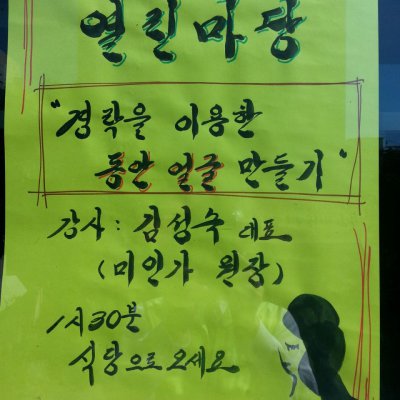 열린마당
"경락을 이용한
동안 얼굴 만들기"
강사 : 김성숙 대표
(미인가 원장)
1시30분
식당으로 오세요